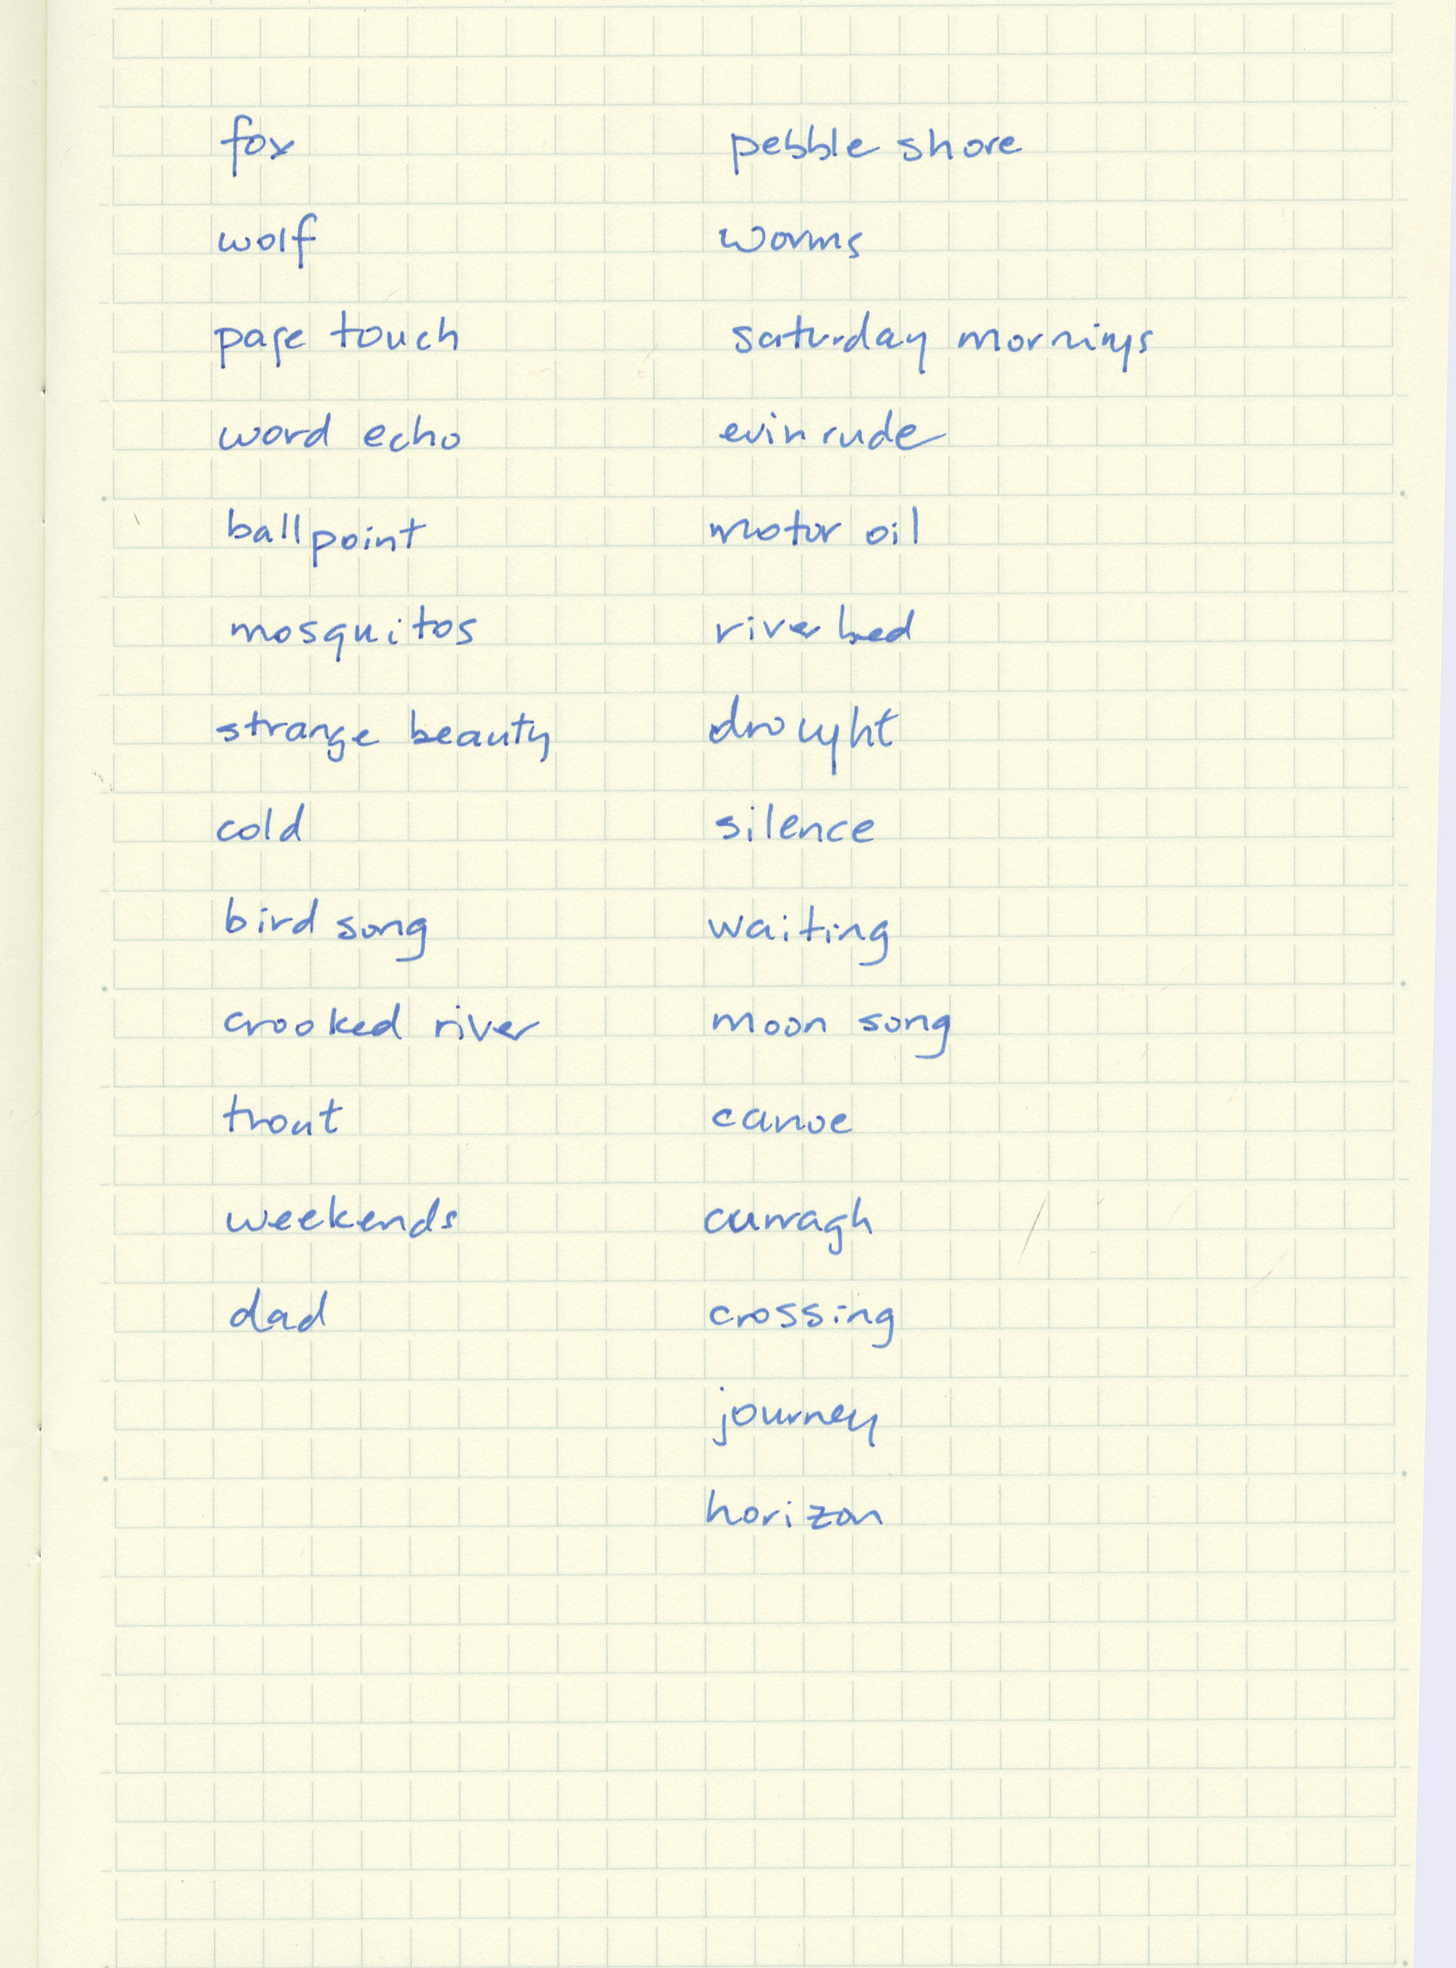 fox
wolf
page touch
word echo
ballpoint
mosquitos
strange beauty
cold
bird song
crooked river
trout
weekends
dad
pebble shore
worms
saturday mornings
evinrude
motor oil
river bed
drought
silence
waiting
moon song
canoe
curragh
crossing
journey
horizon